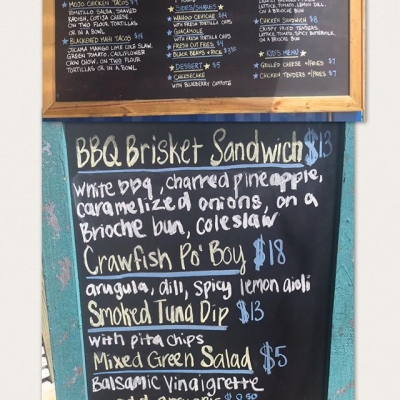 MOJO CHICKEN TACOS $9
TOMATILLO SALSA, SHAVED
RADISH, COTIJA CHEESE,
ON TWO FLOUR TORTILLAS
OR IN A BOWL
BLACKENED MAHI TACOS
JICAMA MANGO LIME COLE SLAW,
GREEN TOMATO, CAULIFLOWER
CHOW CHOW, ON TWO FLOUR
TORTILLAS OR IN A BOWL
SIDES/SHARES
WAHOO CEVICHE $14
WITH FRESH TORTILLA CHIPS
GUACAMOLE
WITH FRESH TORTILLA CHIPS
FRESH CUT FRIES $4
BLACK BEANS + RICE
DESSERT $5
CHEESECAKE
WITH BLUEBERRY COMPOTE
LETTUCE, TOMATO, LEMON DILL,
ON A BRIOCHE BUN
CHICKEN SANDWICH $8
CRISPY FRIED TENDERS,
LETTUCE, TOMATO, SPICY BUTTERMILK,
ON A BRIOCHE BUN
KID'S MENU
GRILLED CHEESE w/FRIES $7
CHICKEN TENDERS w/FRIES $7
BBQ Brisket Sandwich $13
white bbq, charred pineapple,
caramelized onions, on a
Brioche bun, coleslaw
Crawfish Po' Boy $18
arugula, dill, spicy lemon aioli
Smoked Tuna Dip $13
with pita chips
Mixed Green Salad $5
Balsamic Vinaigrette